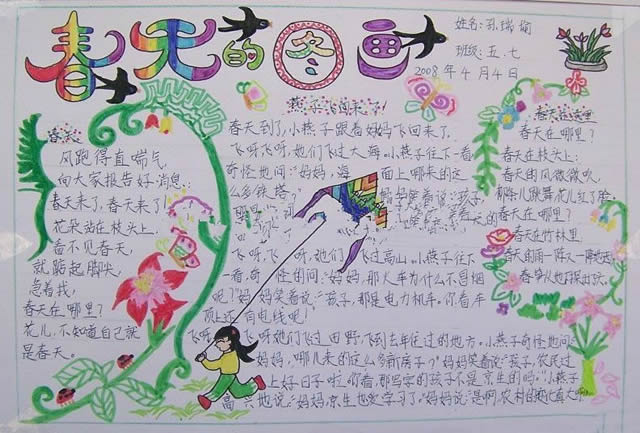 春天的图画
姓名:孙瑞瑜
班级:五.七
2008年4月4日
春天
风跑得直喘气,
向大家报告好消息,
春天来了,春天来了!
花朵站在枝头上,
看不见春天,
就踮起脚尖,
急着找!
春天在哪里?
花儿,不知道自己就
是春天。
燕子飞回来了!
春天到了,小燕子跟着妈妈飞回来了。
飞呀飞呀,她们飞过大海。小燕子往下一看
奇怪地问:“妈妈,海 面上哪来的这
么多铁塔?
妈妈笑着说:“孩子
飞呀,飞 呀,她们飞过高山。小燕子往下
一看,奇怪地问:“妈妈,那火车为什么不冒烟
呢?”妈妈笑着说:“孩子,那是电力机车,你看车
顶上还有电线呢!
飞呀 飞呀她们飞过田野,飞到去年住过的地方,小燕子奇怪地问:
妈妈,哪儿来的这么多新房子?”妈妈笑着说:“孩子,农民过
上好日子啦,你看,那写字的孩子不是京生的吗。”小燕子
高兴地说:“妈妈,京生也爱学习了。”妈妈说:“是啊,农村的变化真大啊
春天在哪里
春天在哪里?
春天在枝头上:
春天的风微微吹,
柳条儿跳舞,花儿红了脸
春天在哪里?
春天在竹林里:
春天的雨一阵又一阵地